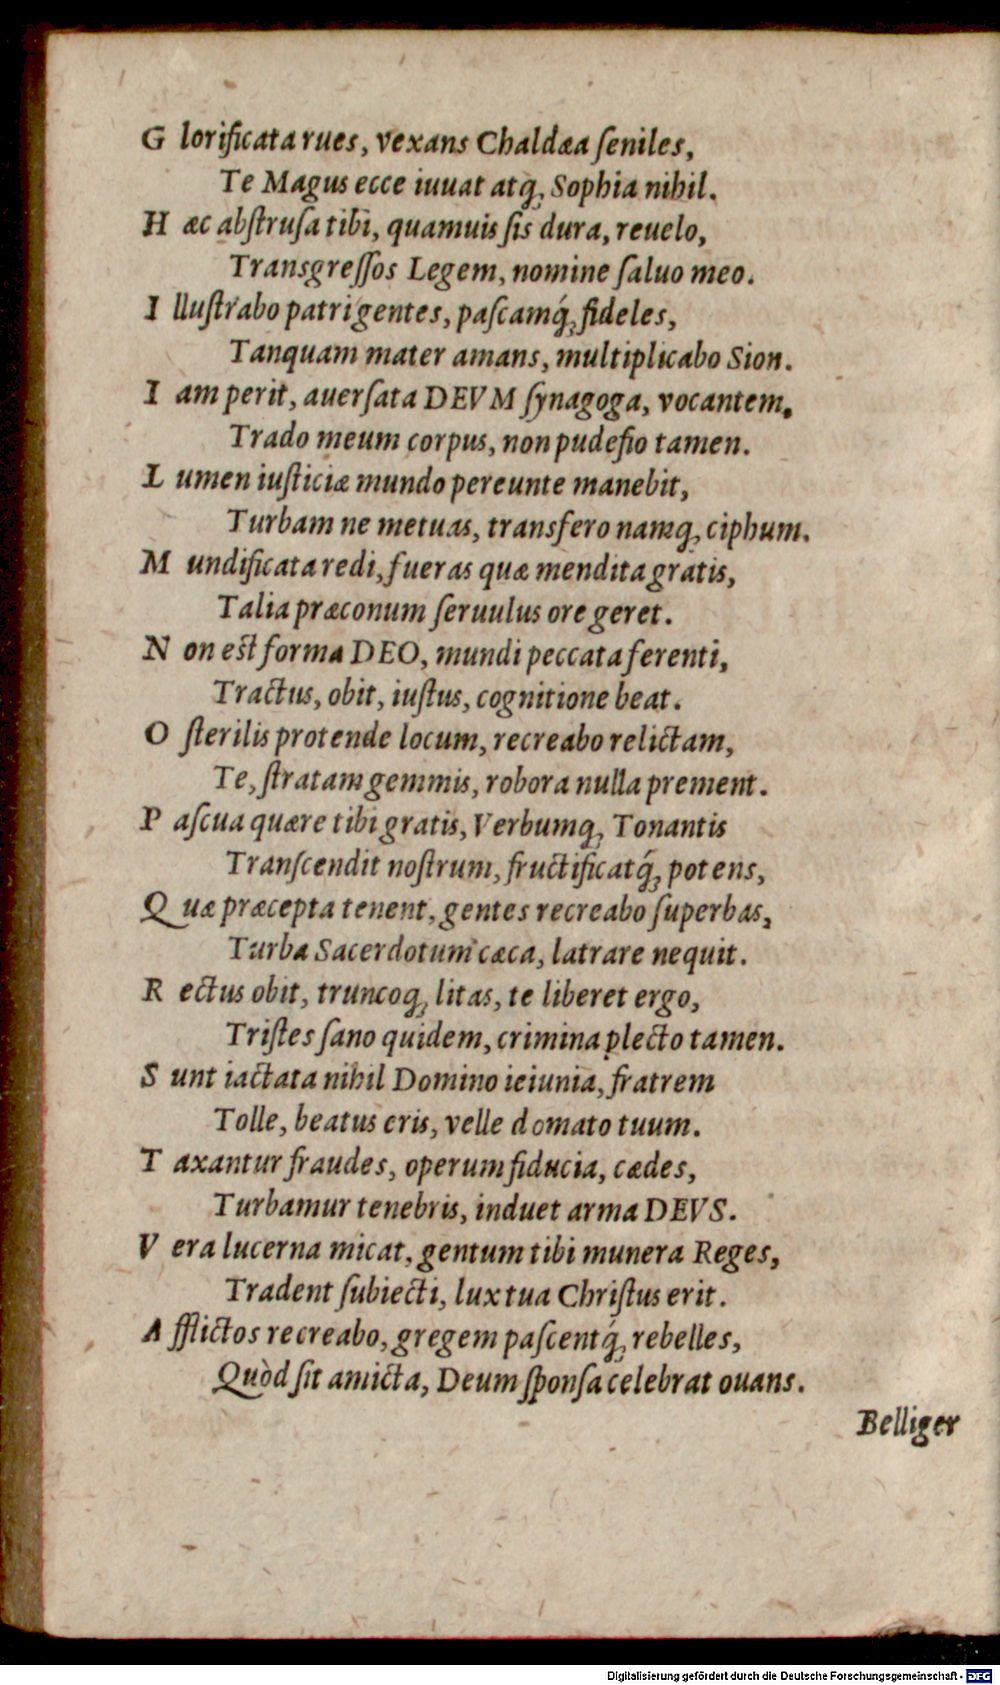 G lorificata rues, vexans Chaldæa ſeniles,
Te Magus ecce iuuat atq́; Sophia nihil.
H æc abſtruſa tibi, quamuis ſis dura, reuelo,
Transgreſſos Legem, nomine ſaluo meo.
I lluſtrabo patri gentes, paſcamq́; fideles,
Tanquam mater amans, multiplicabo Sion.
I am perit, auerſata DEVM ſynagoga, vocantem,
Trado meum corpus, non pudefio tamen.
L umen iuſticiæ mundo pereunte manebit,
Turbam ne metuas, transfero namq; ciphum.
M undificata redi, fueras quæ mendita gratis,
Talia præconum ſeruulus ore geret.
N on eſt forma DEO, mundi peccata ferenti,
Tractus, obit, iuſtus, cognitione beat.
O ſterilis protende locum, recreabo relictam,
Te, ſtratam gemmis, robora nulla prement.
P aſcua quære tibi gratis, Verbumq; Tonantis
Tranſcendit noſtrum, fructificatq́; potens,
Q uæ præcepta tenent, gentes recreabo ſuperbas,
Turba Sacerdotum cæca, latrare nequit.
R ectus obit, truncoq; litas, te liberet ergo,
Triſtes ſano quidem, crimina plecto tamen.
S unt iactata nihil Domino ieiunia, fratrem
Tolle, beatus eris, velle domato tuum.
T axantur fraudes, operum fiducia, cædes,
Turbamur tenebris, induet arma DEVS.
V era lucerna micat, gentum tibi munera Reges,
Tradent ſubiecti, lux tua Chriſtus erit.
A fflictos recreabo, gregem paſcentq́; rebelles,
Quòd ſit amicta, Deum ſponſa celebrat ouans.
Belliger
Digitalisierung gefördert durch die Deutsche Forschungsgemeinschaft - DFG